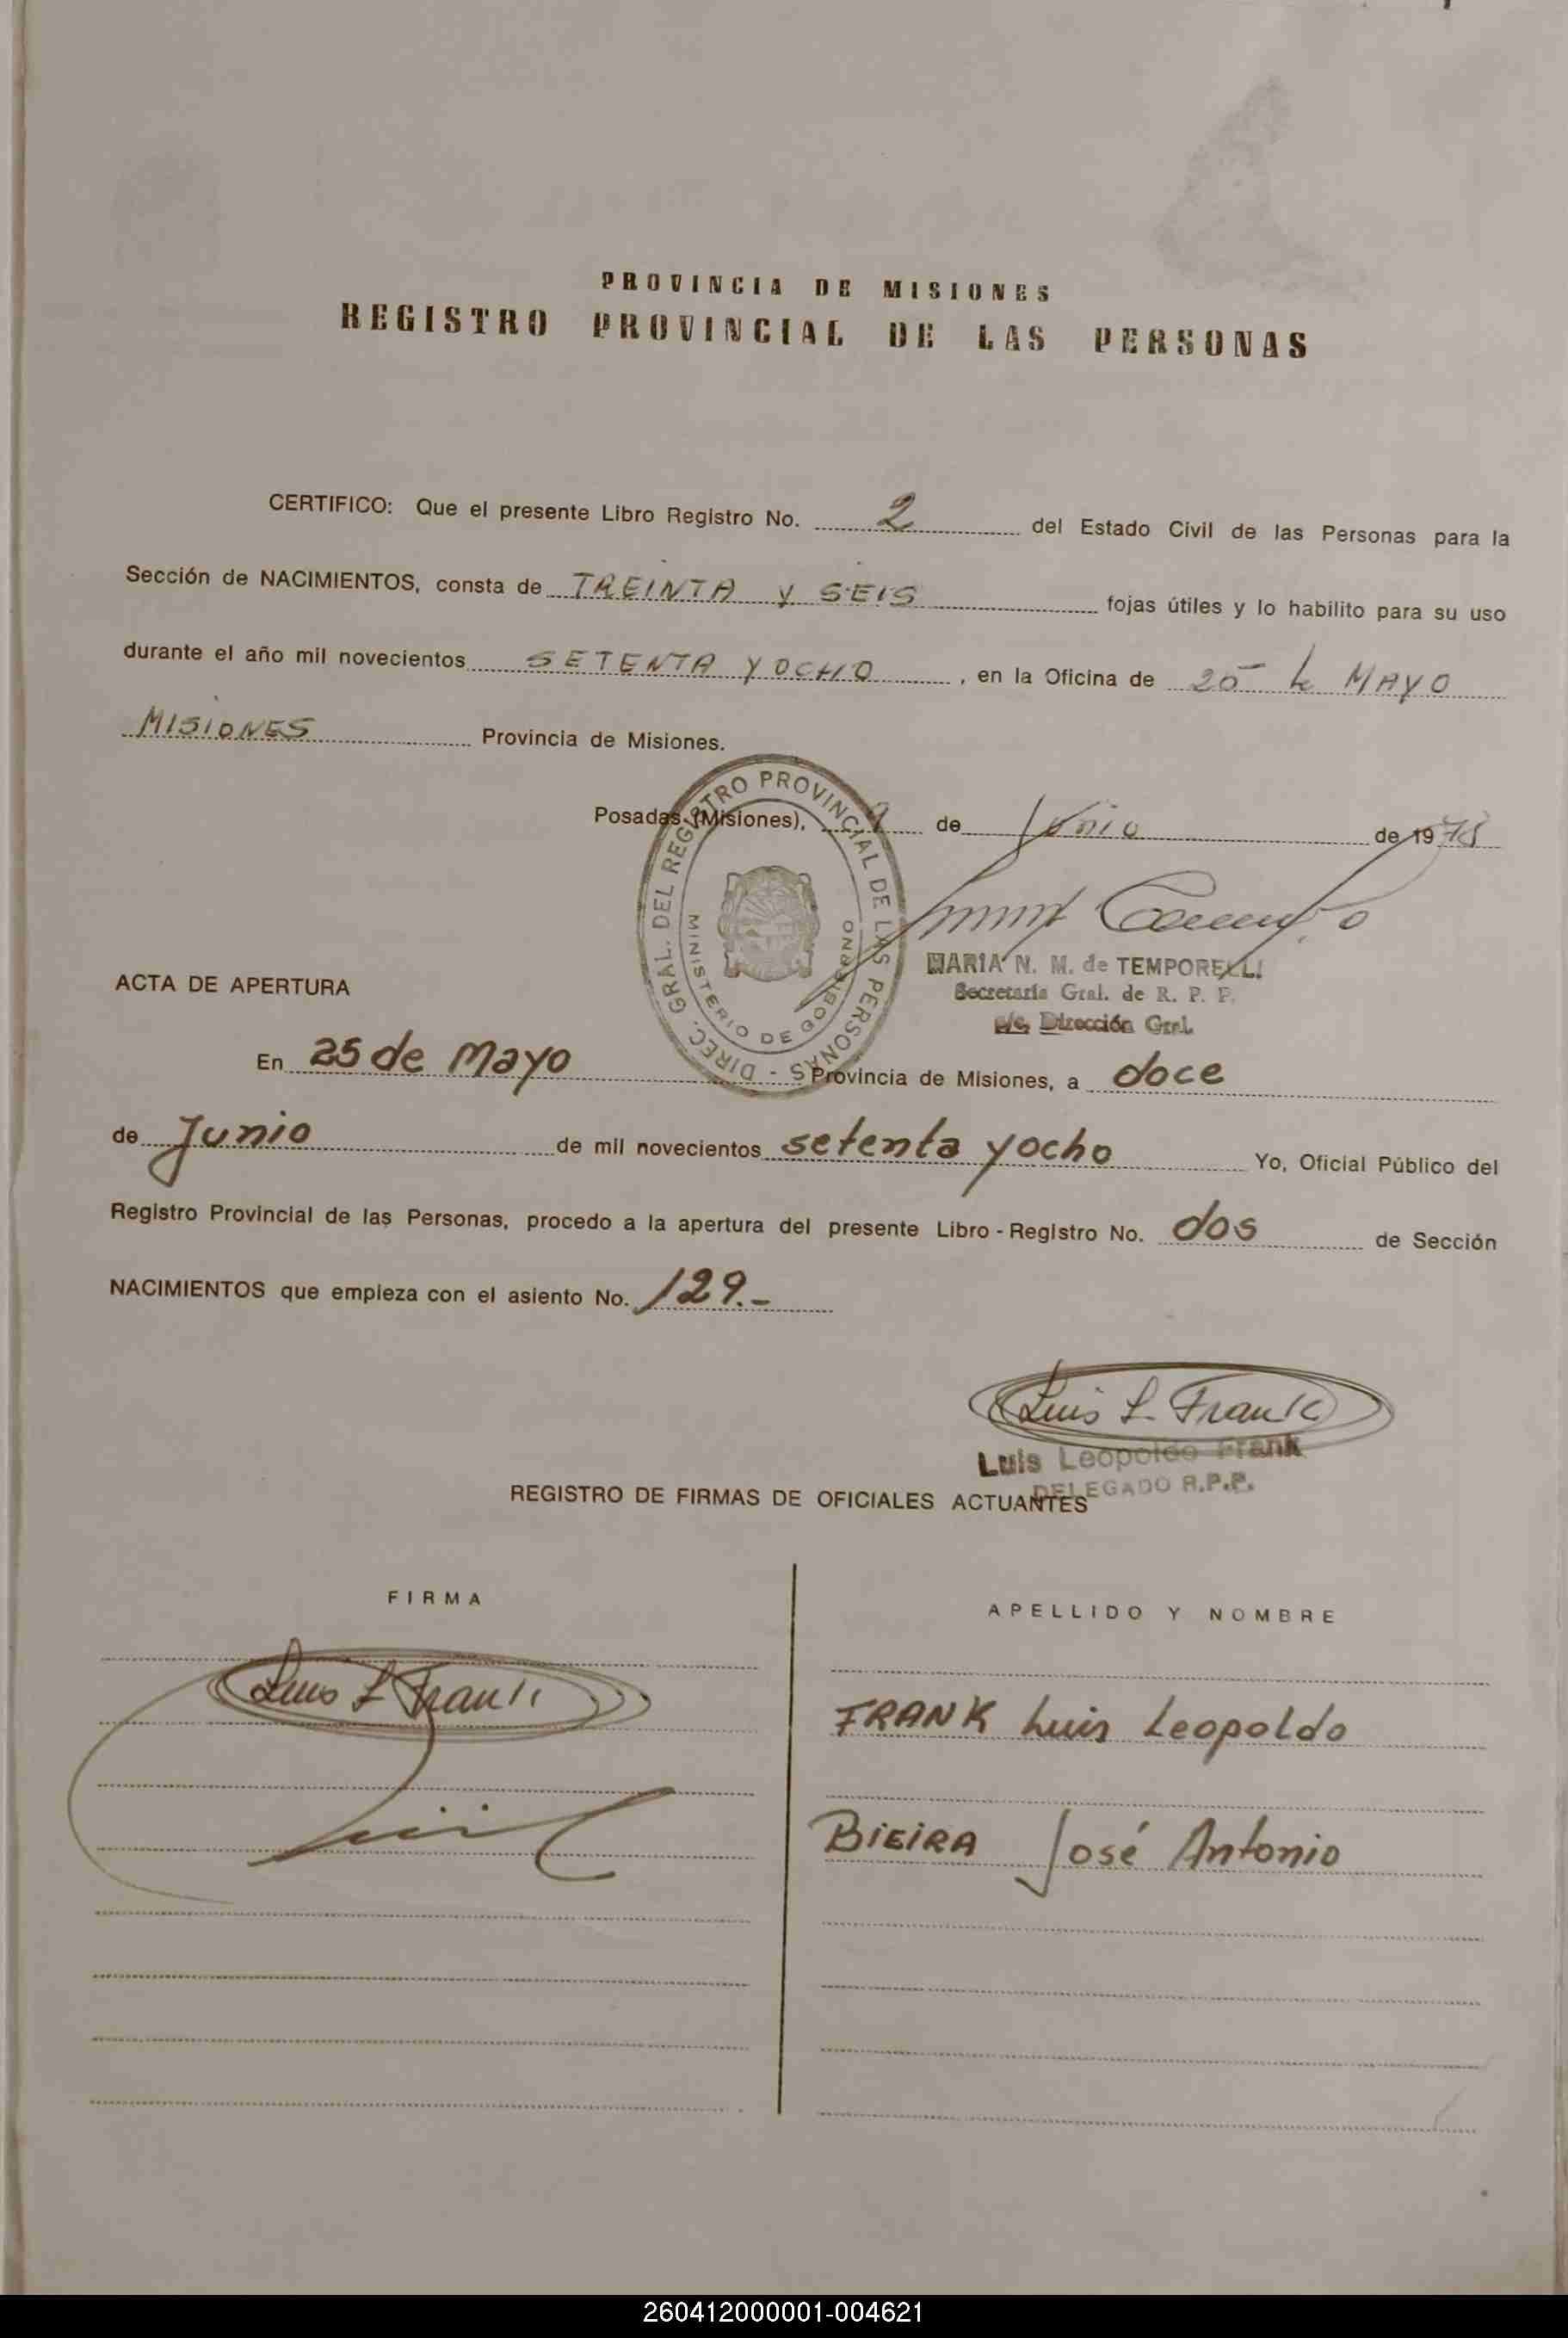 PROVINCIA DE MISIONES
REGISTRO PROVINCIAL DE LAS PERSONAS
CERTIFICO: Que el presente Libro Registro No. 2 del Estado Civil de las Personas para la
Sección de NACIMIENTOS, consta de TREINTA Y SEIS fojas útiles y lo habilito para su uso
durante el año mil novecientos SETENTA Y OCHO, en la Oficina de 25 de MAYO
MISIONES Provincia de Misiones.
Posadas (Misiones), 9 de Junio de 1978
DIREC. GRAL. DEL REGISTRO PROVINCIAL DE LAS PERSONAS -
MINISTERIO DE GOBIERNO
MARIA N. M. de TEMPORELLI
Secretaria Gral. de R. P. P.
a/c. Dirección Gral.
ACTA DE APERTURA
En 25 de Mayo Provincia de Misiones, a doce
de Junio de mil novecientos setenta y ocho Yo, Oficial Público del
Registro Provincial de las Personas, procedo a la apertura del presente Libro - Registro No. dos de Sección
NACIMIENTOS que empieza con el asiento No. 129.-
Luis L. Frank
Luis Leopoldo Frank
DELEGADO R.P.P.
REGISTRO DE FIRMAS DE OFICIALES ACTUANTES
FIRMA
APELLIDO Y NOMBRE
Luis L Frank
FRANK Luis Leopoldo
BIEIRA José Antonio
260412000001-004621